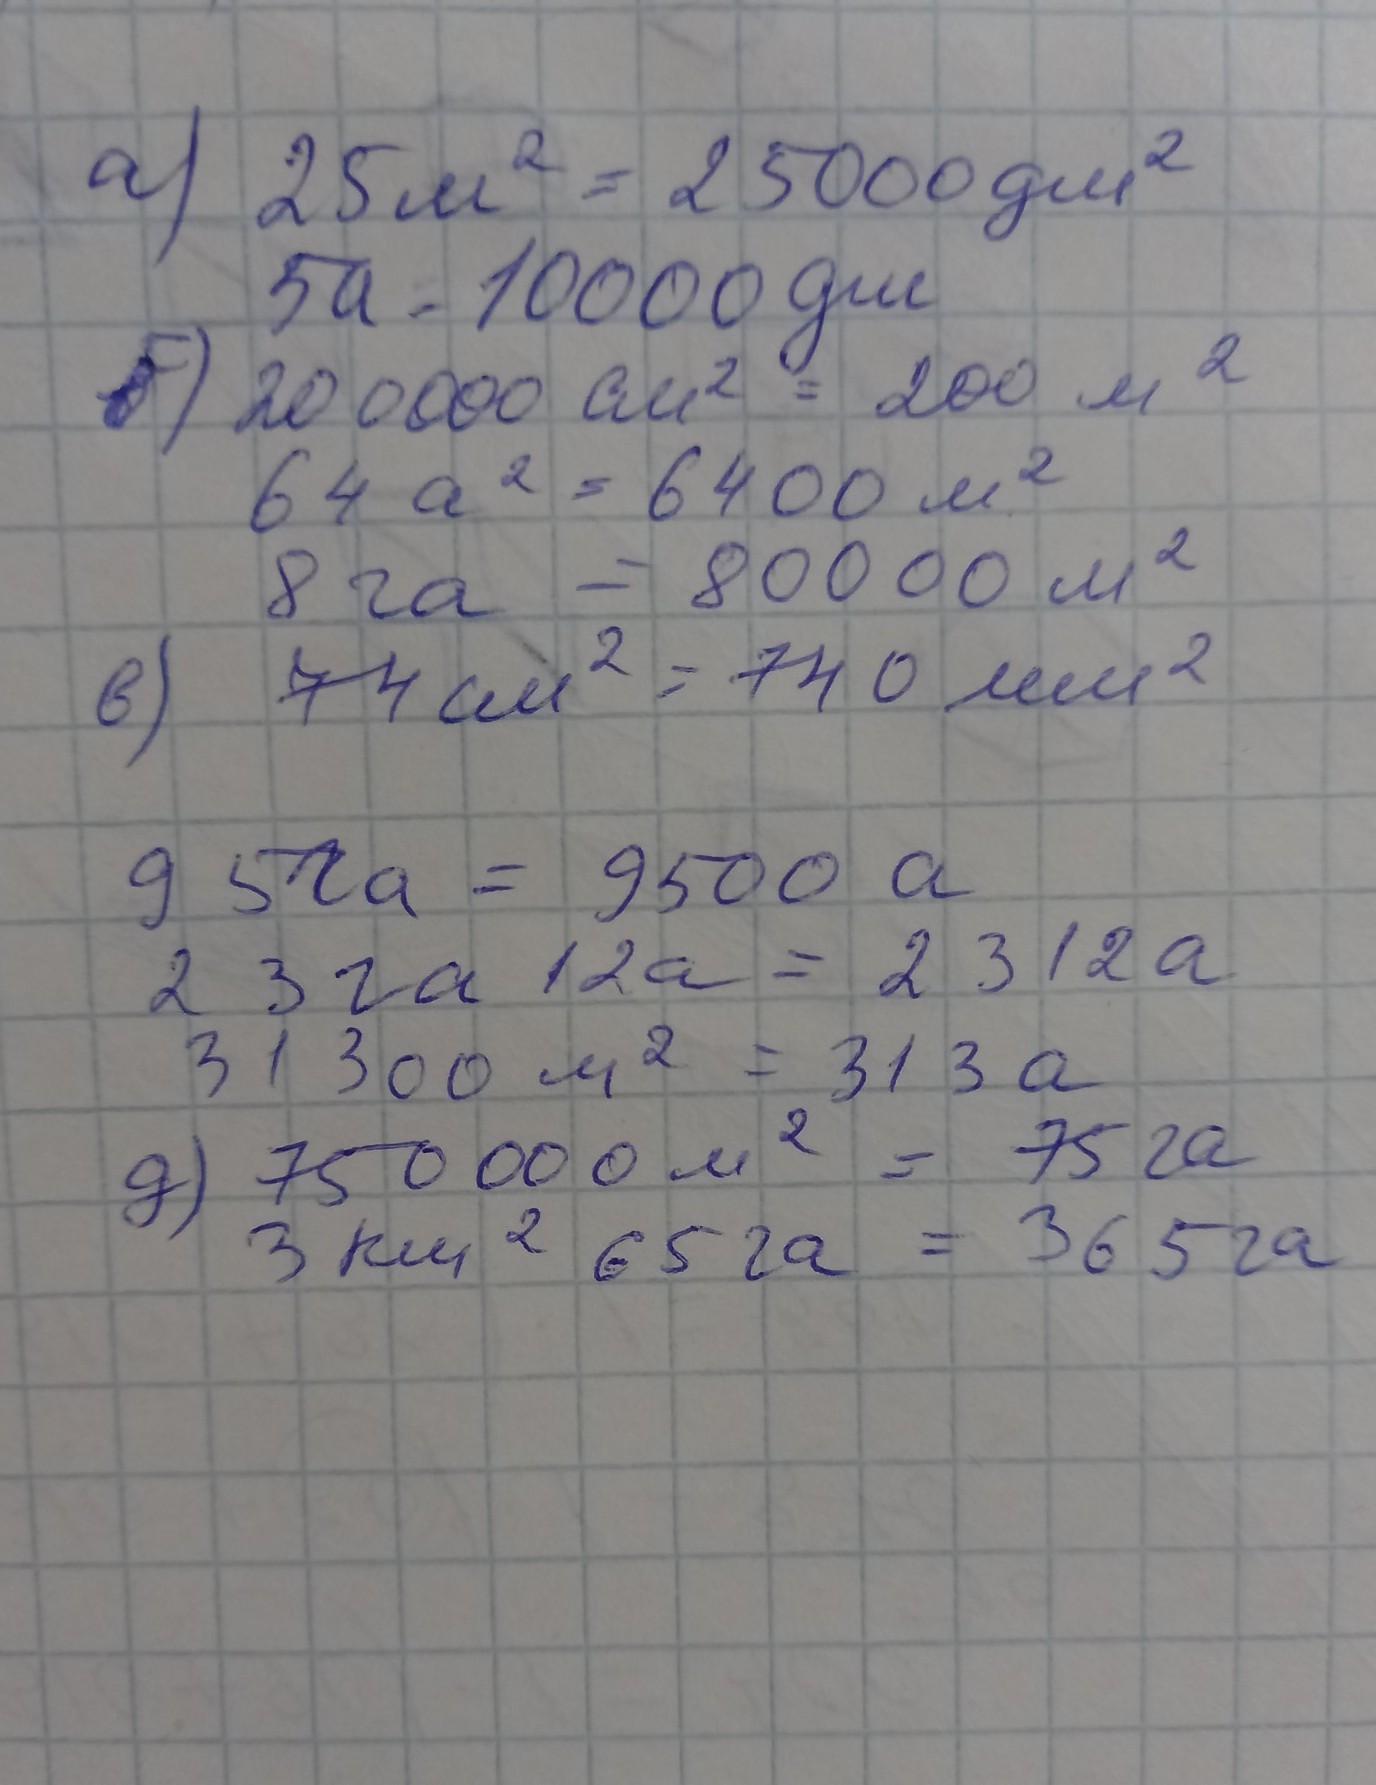 а) 25 м² = 25000 дм²
5а = 10000 дм
б) 200000 см² = 200 м²
64 а² = 6400 м²
8 га = 80000 м²
в) 74 см² = 740 мм²
95 га = 9500 а
23 га 12а = 2312а
31300 м² = 313 а
д) 750000 м² = 75 га
3 км² 65 га = 365 га